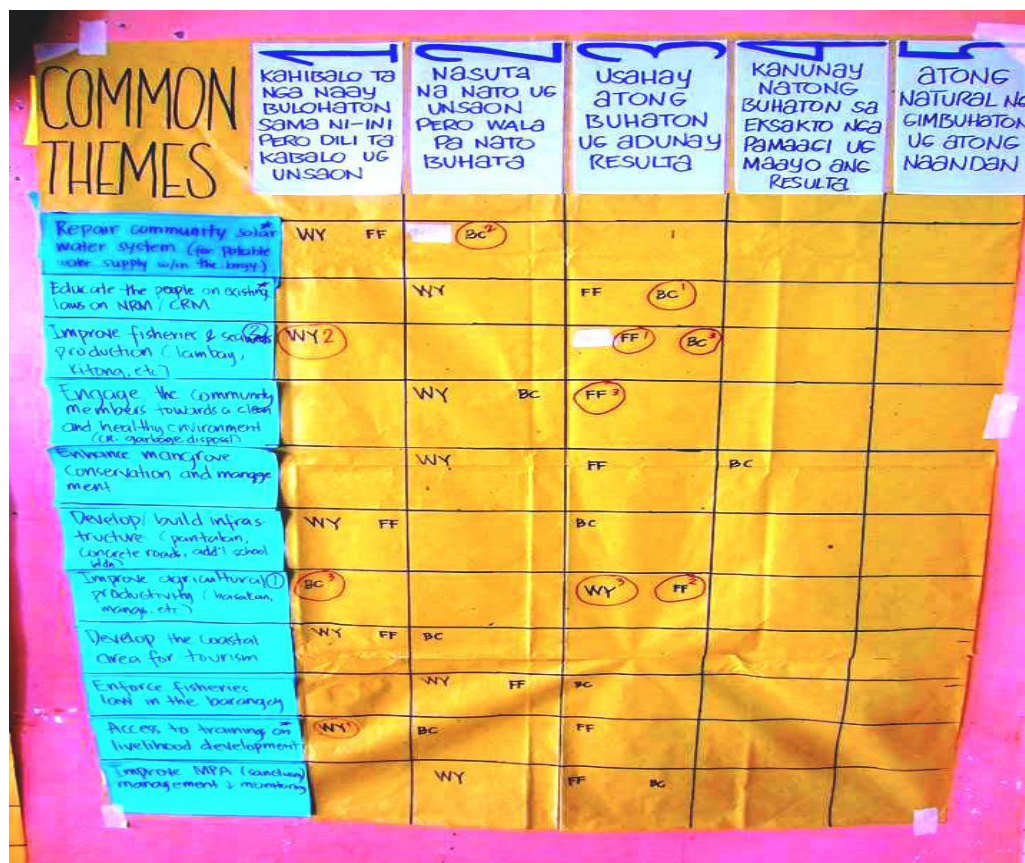 COMMON THEMES
1
KAHIBALO TA
NGA NAAY
BULOHATON
SAMA NI-INI
PERO DILI TA
KABALO UG
UNSAON
2
NASUTA
NA NATO UG
UNSAON
PERO WALA
PA NATO
BUHATA
3
USAHAY
ATONG
BUHATON
UG ADUNAY
RESULTA
4
KANUNAY
NATONG
BUHATON SA
EKSAKTO NGA
PAMAAGI UG
MAAYO ANG
RESULTA
5
ATONG
NATURAL NG
GIMBUHATON
UG ATONG
NAANDAN
Repair community solar
water system (for potable
water supply w/in the brgy)
WY FF BC2
Educate the people on existing
laws on NRM / CRM
WY FF BC1
Improve fisheries &
production (lambay,
kitong, etc)
2
WY 2 FF1 BC3
Engage the community
members towards a clean
and healthy environment
(CR. garbage disposal)
WY BC FF3
Enhance mangrove
conservation and manage
ment
WY FF BC
Develop/build infras
tructure (pantalan,
concrete roads, add'l school
bldn)
WY FF BC
Improve agricultural 1
productivity (basakan,
mangi, etc)
BC3 WY3 FF2
Develop the coastal
area for tourism
WY FF BC
Enforce fisheries
law in the barangay
WY FF BC
Access to training on
livelihood development
WY1 BC FF
Improve MPA (sanctuary)
management &
WY FF BC